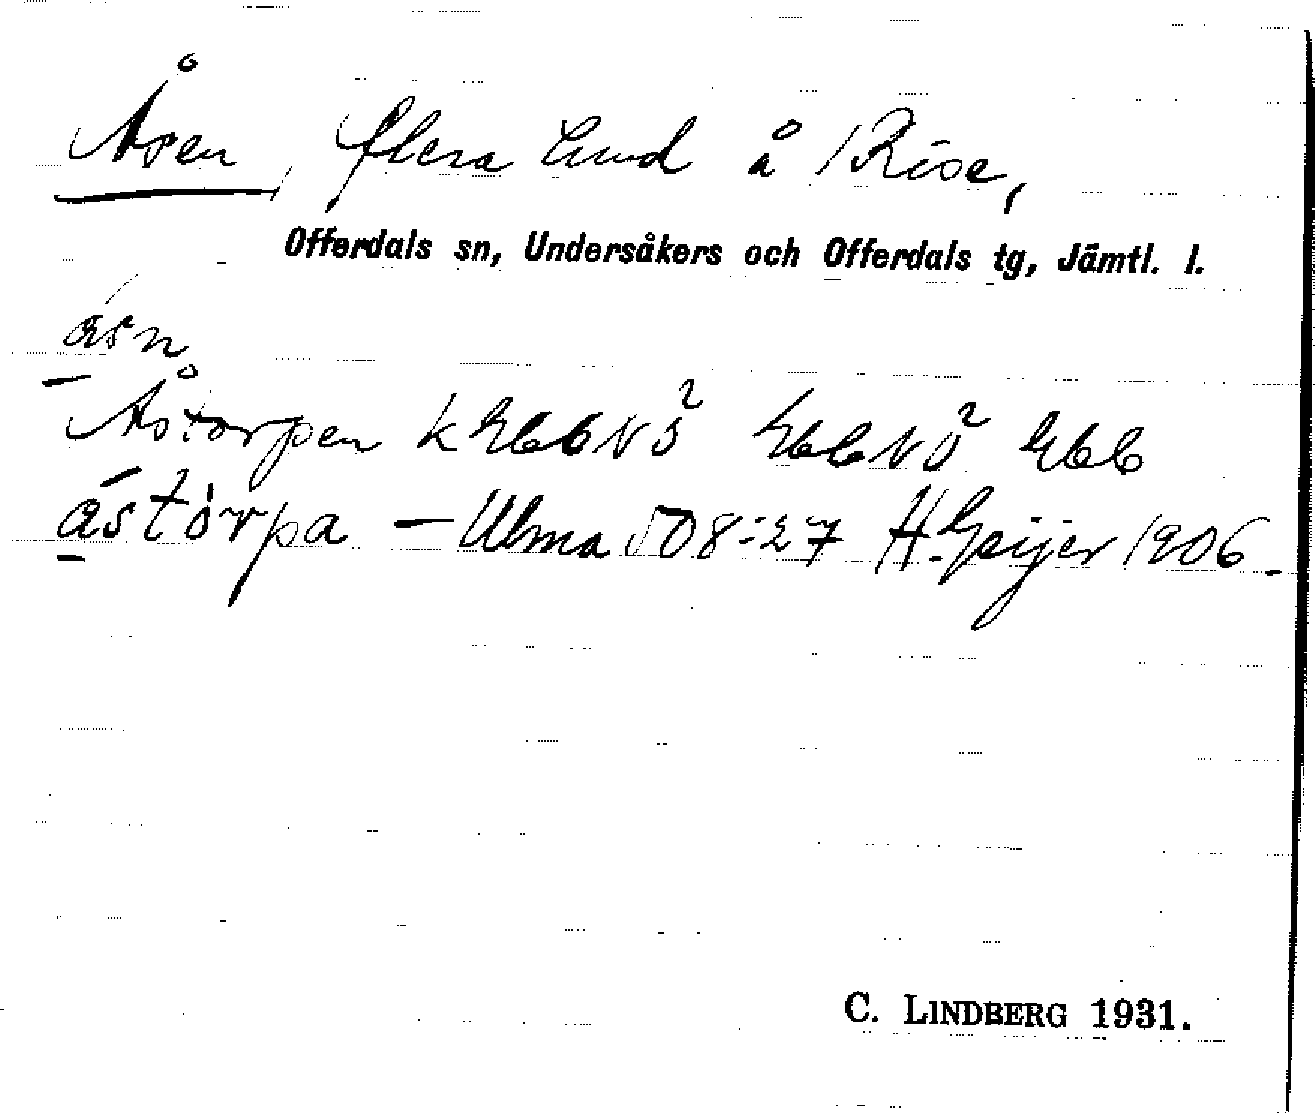 Åsen, flera lund å Rise,
Offerdals sn, Undersåkers och Offerdals tg, Jämtl. l.
åsn
Åstorpen k
åstórpa — Ulma 508:27 H. Geijer 1906.
C. LINDBERG 1931.